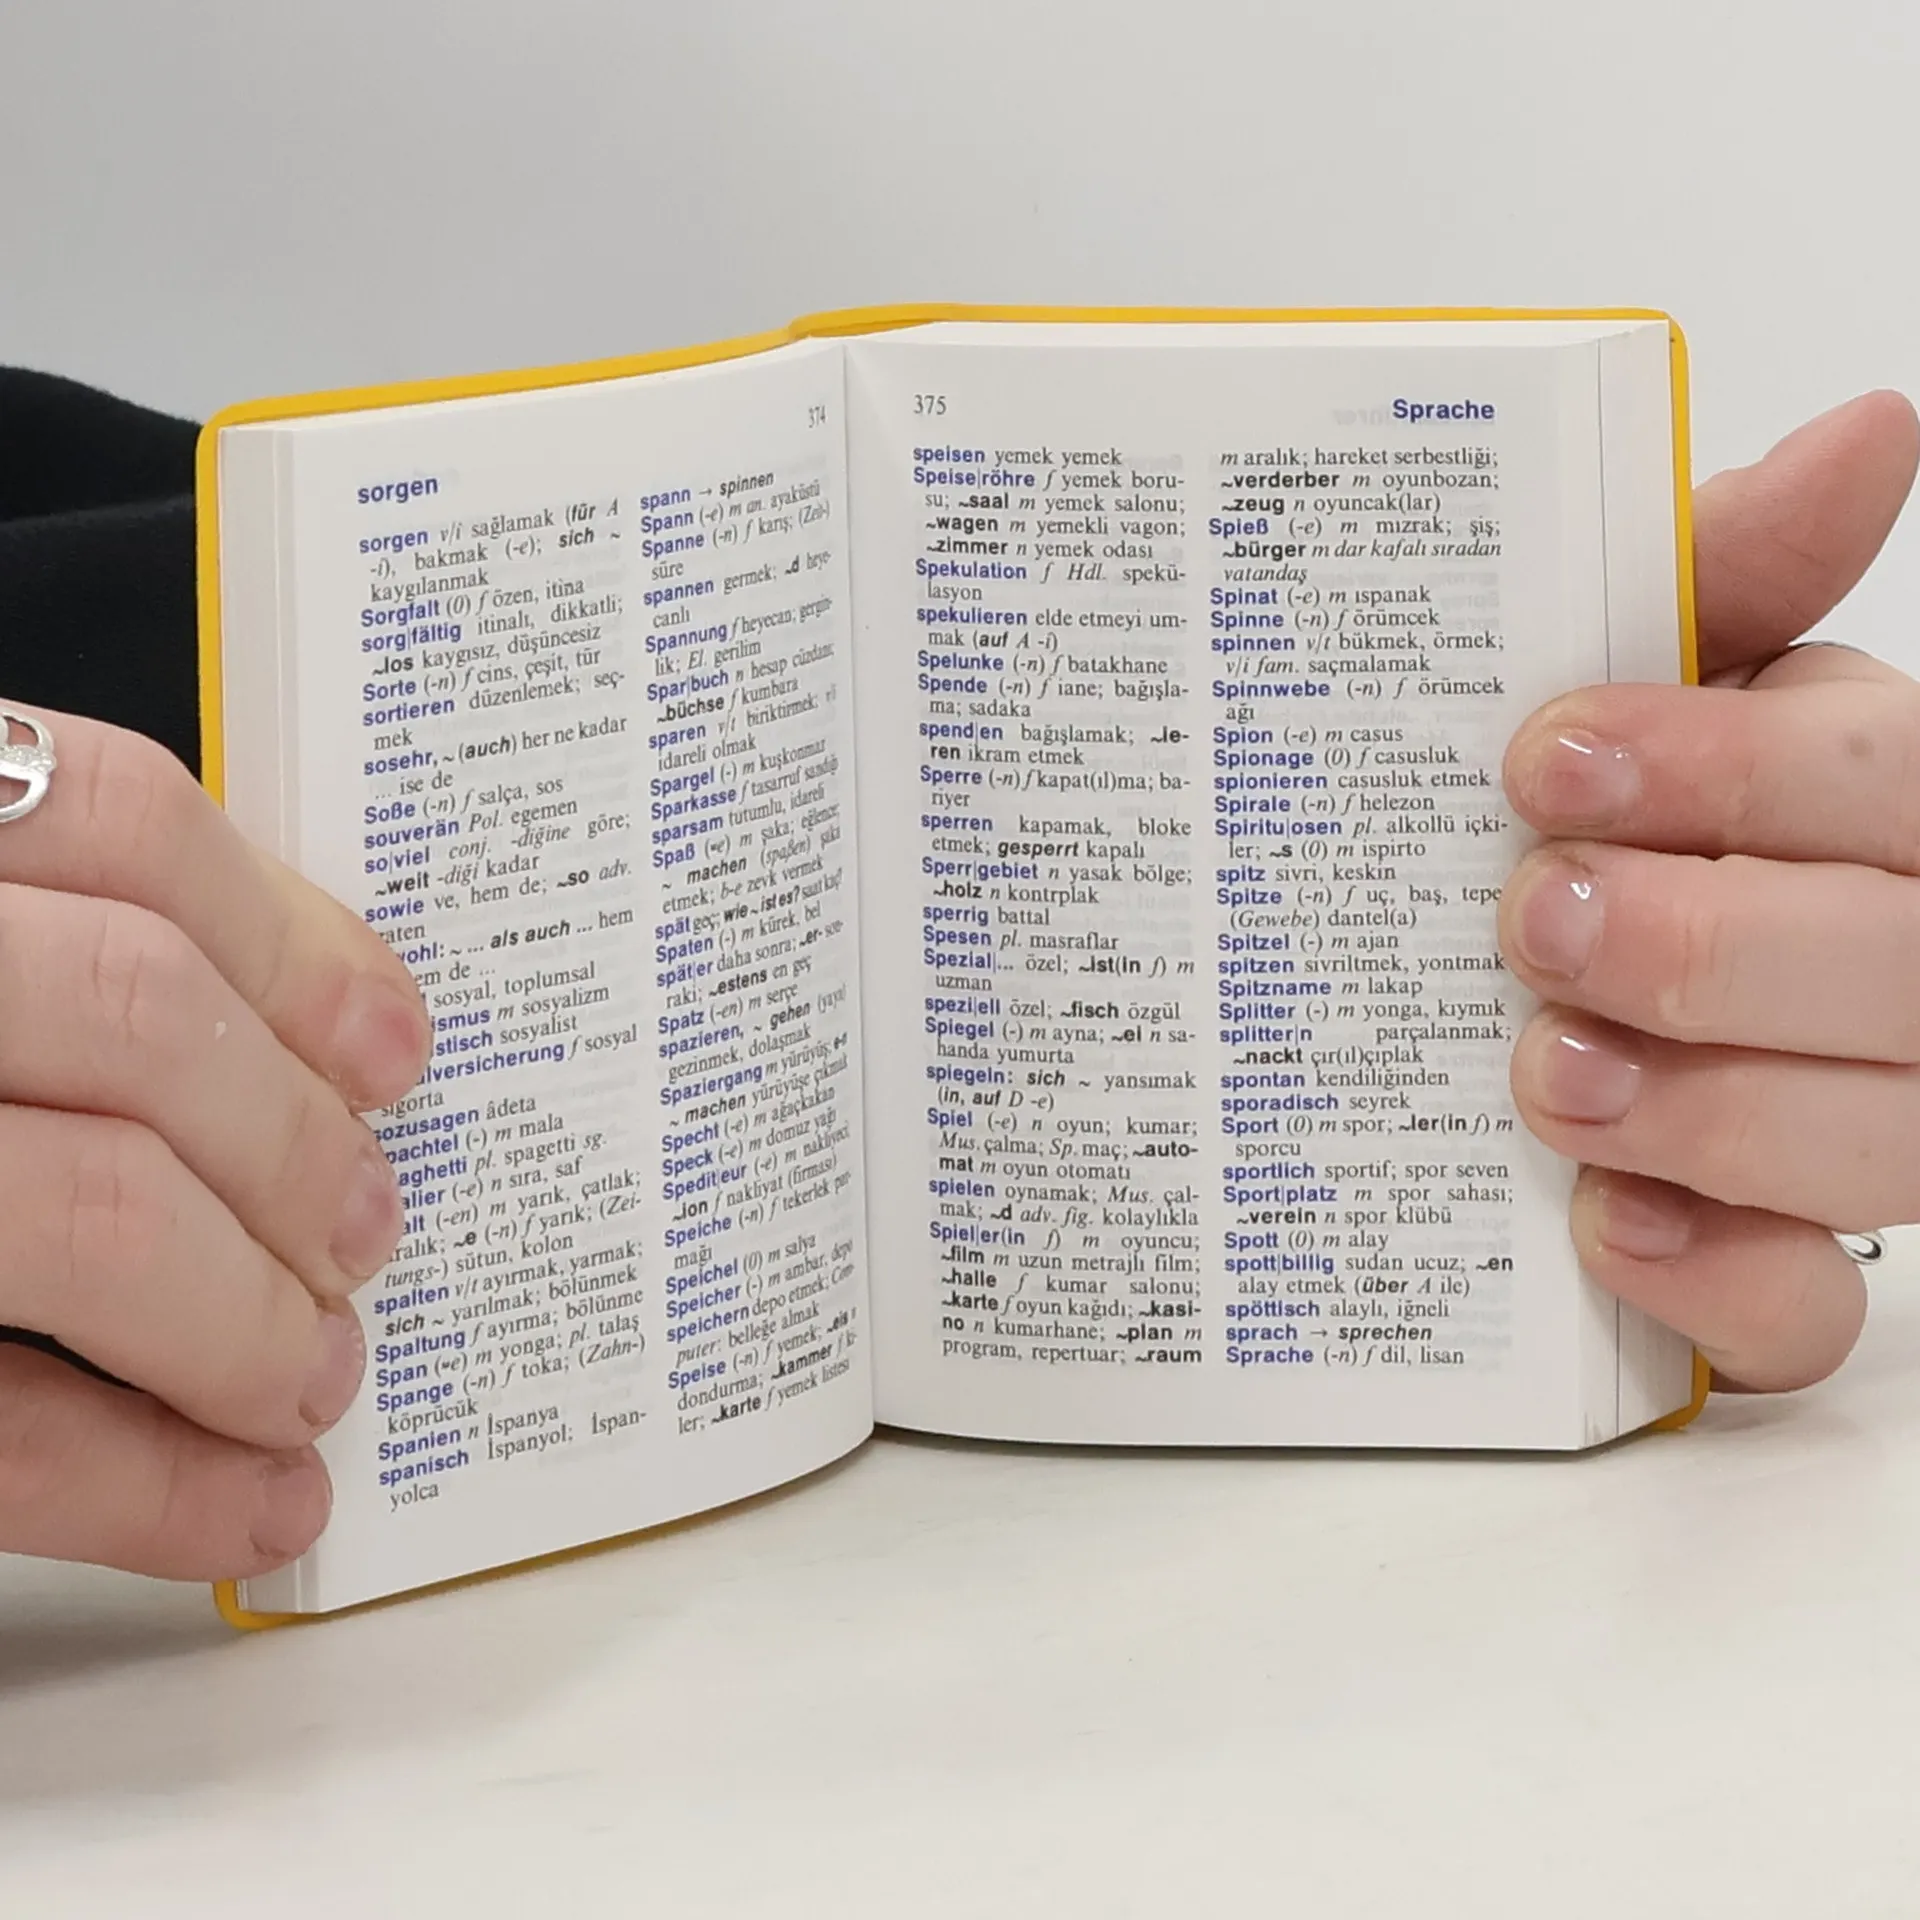 374
sorgen
sorgen v/i sağlamak (für A
-i), bakmak (-e); sich ~
kaygılanmak
Sorgfalt (0) f özen, itina
sorg|fältig itinalı, dikkatli;
~los kaygısız, düşüncesiz
Sorte (-n) f cins, çeşit, tür
sortieren düzenlemek; seç-
mek
sosehr, ~ (auch) her ne kadar
... ise de
Soße (-n) f salça, sos
souverän Pol. egemen
so|viel conj. -diğine göre;
~weit -diği kadar
sowie ve, hem de; ~so adv.
zaten
~ ... als auch ... hem
de ...
sosyal, toplumsal
m sosyalizm
sosyalist
f sosyal
sigorta
sozusagen âdeta
(-) m mala
pl. spagetti sg.
(-e) n sıra, saf
(-en) m yarık, çatlak;
~e (-n) f yarık; (Zei-
tungs-) sütun, kolon
spalten v/t ayırmak, yarmak;
sich ~ yarılmak; bölünmek
Spaltung f ayırma; bölünme
Span (⸚e) m yonga; pl. talaş
Spange (-n) f toka; (Zahn-)
köprücük
Spanien n İspanya
spanisch İspanyol; İspan-
yolca
spann → spinnen
Spann (-e) m an. ayaküstü
Spanne (-n) f karış; (Zeit-)
süre
spannen germek; ~d heye-
canlı
Spannung f heyecan; gergin-
lik; El. gerilim
Spar|buch n hesap cüzdanı;
~büchse f kumbara
sparen v/t biriktirmek; v/i
idareli olmak
Spargel (-) m kuşkonmaz
Sparkasse f tasarruf sandığı
sparsam tutumlu, idareli
Spaß (⸚e) m şaka; eğlence;
~ machen (spaßen) şaka
etmek; b-e zevk vermek
spät geç; wie ~ ist es? saat kaç?
Spaten (-) m kürek, bel
spät|er daha sonra; ~er- son-
raki; ~estens en geç
Spatz (-en) m serçe
spazieren, ~ gehen (yaya)
gezinmek, dolaşmak
Spaziergang m yürüyüş; e-n
~ machen yürüyüşe çıkmak
Specht (-e) m ağaçkakan
Speck (-e) m domuz yağı
Spedit|eur (-e) m nakliyeci;
~ion f nakliyat (firması)
Speiche (-n) f tekerlek par-
mağı
Speichel (0) m salya
Speicher (-) m ambar, depo
speichern depo etmek; Com-
puter: belleğe almak
Speise (-n) f yemek; ~eis n
dondurma; ~kammer f ki-
ler; ~karte f yemek listesi
375
Sprache
speisen yemek yemek
Speise|röhre f yemek boru-
su; ~saal m yemek salonu;
~wagen m yemekli vagon;
~zimmer n yemek odası
Spekulation f Hdl. spekü-
lasyon
spekulieren elde etmeyi um-
mak (auf A -i)
Spelunke (-n) f batakhane
Spende (-n) f iane; bağışla-
ma; sadaka
spend|en bağışlamak; ~ie-
ren ikram etmek
Sperre (-n) f kapat(ıl)ma; ba-
riyer
sperren kapamak, bloke
etmek; gesperrt kapalı
Sperr|gebiet n yasak bölge;
~holz n kontrplak
sperrig battal
Spesen pl. masraflar
Spezial|... özel; ~ist(in f) m
uzman
spezi|ell özel; ~fisch özgül
Spiegel (-) m ayna; ~ei n sa-
handa yumurta
spiegeln: sich ~ yansımak
(in, auf D -e)
Spiel (-e) n oyun; kumar;
Mus. çalma; Sp. maç; ~auto-
mat m oyun otomatı
spielen oynamak; Mus. çal-
mak; ~d adv. fig. kolaylıkla
Spiel|er(in f) m oyuncu;
~film m uzun metrajlı film;
~halle f kumar salonu;
~karte f oyun kağıdı; ~kasi-
no n kumarhane; ~plan m
program, repertuar; ~raum
m aralık; hareket serbestliği;
~verderber m oyunbozan;
~zeug n oyuncak(lar)
Spieß (-e) m mızrak; şiş;
~bürger m dar kafalı sıradan
vatandaş
Spinat (-e) m ıspanak
Spinne (-n) f örümcek
spinnen v/t bükmek, örmek;
v/i fam. saçmalamak
Spinnwebe (-n) f örümcek
ağı
Spion (-e) m casus
Spionage (0) f casusluk
spionieren casusluk etmek
Spirale (-n) f helezon
Spiritu|osen pl. alkollü içki-
ler; ~s (0) m ispirto
spitz sivri, keskin
Spitze (-n) f uç, baş, tepe
(Gewebe) dantel(a)
Spitzel (-) m ajan
spitzen sivriltmek, yontmak
Spitzname m lakap
Splitter (-) m yonga, kıymık
splitter|n parçalanmak;
~nackt çır(ıl)çıplak
spontan kendiliğinden
sporadisch seyrek
Sport (0) m spor; ~ler(in f) m
sporcu
sportlich sportif; spor seven
Sport|platz m spor sahası;
~verein n spor klübü
Spott (0) m alay
spott|billig sudan ucuz; ~en
alay etmek (über A ile)
spöttisch alaylı, iğneli
sprach → sprechen
Sprache (-n) f dil, lisan